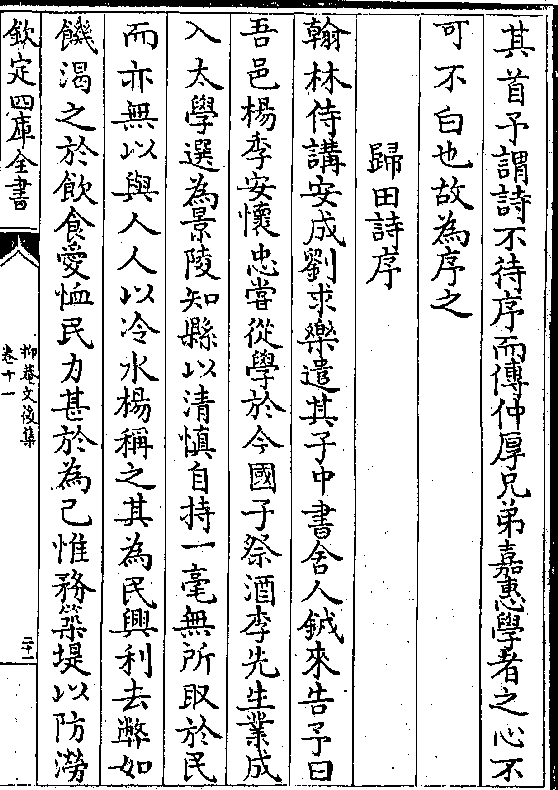 其首予謂詩不待序而傳仲厚兄弟嘉惠學者之心不
可不白也故為序之
歸田詩序
翰林侍講安成劉求樂遣其子中書舍人鉞來告予曰
吾邑楊季安懷忠嘗從學於今國子祭酒李先生業成
入太學選為景陵知縣以清慎自持一毫無所取於民
而亦無以與人人以冷水楊稱之其為民興利去弊如
饑渴之於飲食愛恤民力甚於為己惟務築堤以防澇
欽定四庫全書
抑菴文後集
卷十一
二十一